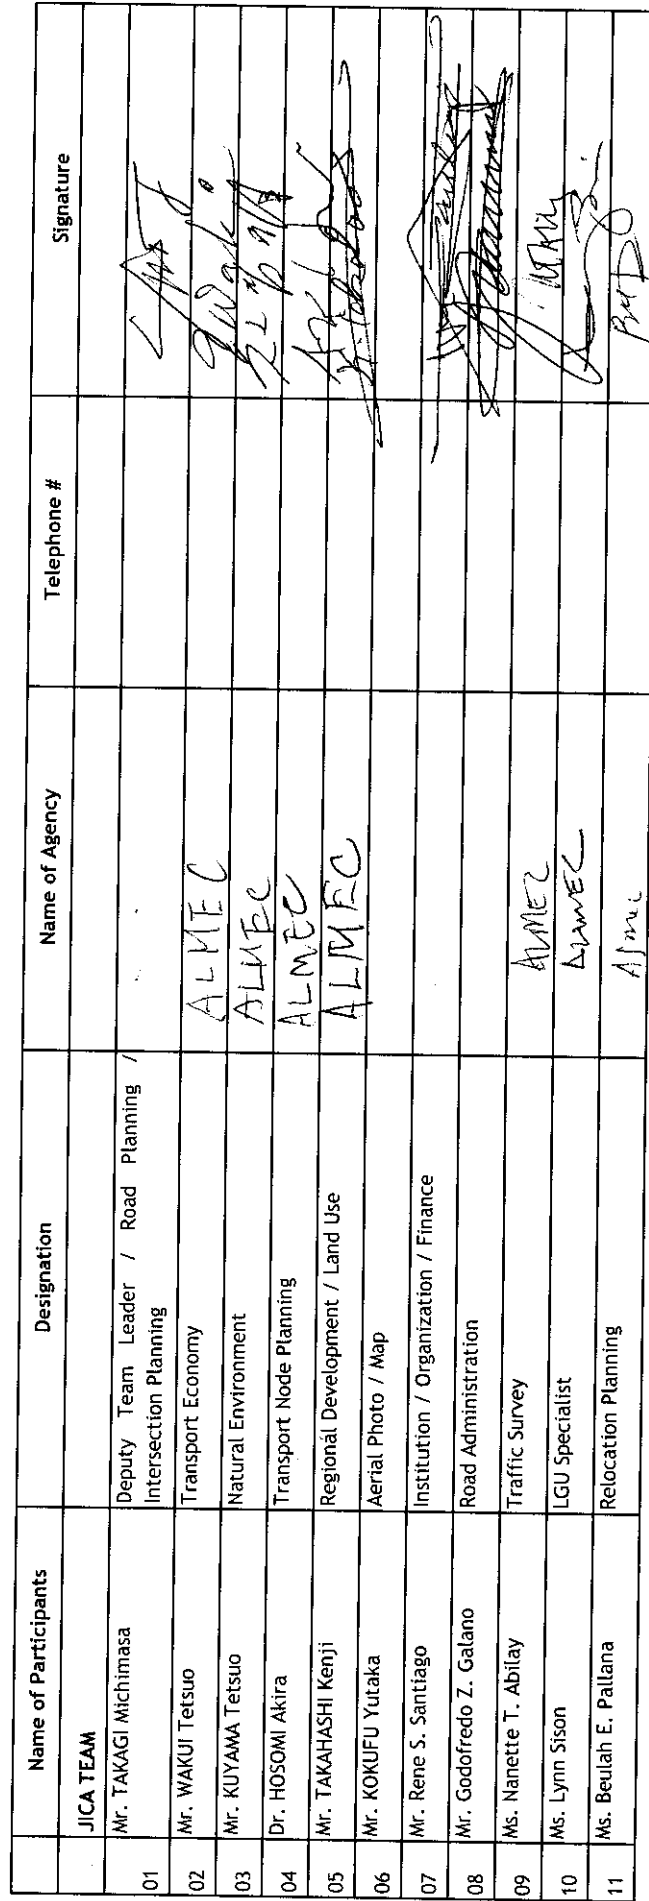 Name of Participants Designation Name of Agency Telephone # Signature
JICA TEAM
01 Mr. TAKAGI Michimasa Deputy Team Leader / Road Planning /
Intersection Planning
02 Mr. WAKUI Tetsuo Transport Economy ALMEC
03 Mr. KUYAMA Tetsuo Natural Environment ALMEC
04 Dr. HOSOMI Akira Transport Node Planning ALMEC
05 Mr. TAKAHASHI Kenji Regional Development / Land Use ALMEC
06 Mr. KOKUFU Yutaka Aerial Photo / Map
07 Mr. Rene S. Santiago Institution / Organization / Finance
08 Mr. Godofredo Z. Galano Road Administration
09 Ms. Nanette T. Abilay Traffic Survey ALMEC
10 Ms. Lynn Sison LGU Specialist ALMEC
11 Ms. Beulah E. Pallana Relocation Planning